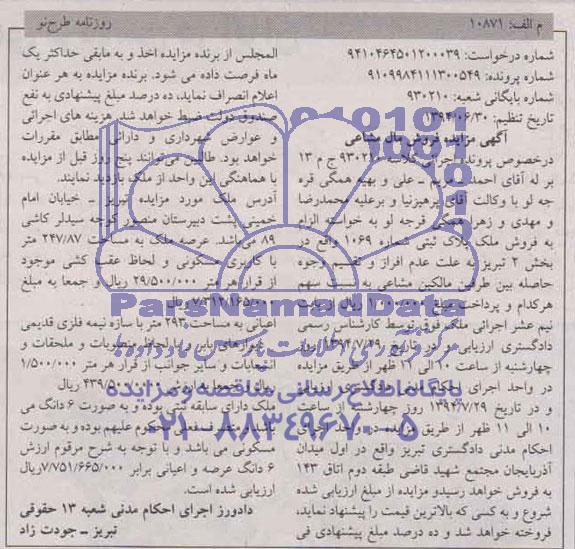 م الف: ۱۰۸۷۱
روزنامه طرح‌نو
شماره درخواست: ۹۴۱۰۴۶۴۵۰۱۲۰۰۰۳۹
شماره پرونده: ۹۱۰۹۹۸۴۱۱۱۳۰۰۵۴۹
شماره بایگانی شعبه: ۹۳۰۲۱۰
تاریخ تنظیم: ۱۳۹۴/۰۶/۳۰
آگهی مزایده فروش مال مشاعی
درخصوص پرونده اجرائی کلاسه ۹۳۰۲۱۰ ج م ۱۳
بر له آقای احمد ـ مریم ـ علی و بهیه همگی قره
جه لو با وکالت آقای پرهیزنیا و برعلیه محمدرضا
و مهدی و زهرا همگی قرجه لو به خواسته الزام
به فروش ملک پلاک ثبتی شماره ۱۰۶۹ واقع در
بخش ۲ تبریز به علت عدم افراز و تقسیم وجوه
حاصله بین طرفین مالکین مشاعی به نسبت سهم
هرکدام و پرداخت مبلغ ریال از بابت
نیم عشر اجرائی ملک فوق توسط کارشناس رسمی
دادگستری ارزیابی در تاریخ ۱۳۹۴/۷/۲۹ روز
چهارشنبه از ساعت ۱۰ الی ۱۱ ظهر از طریق مزایده
در واحد اجرای احکام مدنی دادگستری ارزیابی
و در تاریخ ۱۳۹۴/۷/۲۹ روز چهارشنبه از ساعت
۱۰ الی ۱۱ ظهر از طریق مزایده در واحد اجرای
احکام مدنی دادگستری تبریز واقع در اول میدان
آذربایجان مجتمع شهید قاضی طبقه دوم اتاق ۱۴۳
به فروش خواهد رسیدو مزایده از مبلغ ارزیابی شده
شروع و به کسی که بالاترین قیمت را پیشنهاد نماید،
فروخته خواهد شد و ده درصد مبلغ پیشنهادی فی
المجلس از برنده مزایده اخذ و به مابقی حداکثر یک
ماه فرصت داده می شود. برنده مزایده به هر عنوان
اعلام انصراف نماید، ده درصد مبلغ پیشنهادی به نفع
صندوق دولت ضبط خواهد شد. هزینه های اجرائی
و عوارض شهرداری و دارائی مطابق مقررات
خواهد بود. طالبین می‌توانند پنج روز قبل از مزایده
با هماهنگی این واحد از ملک بازدید نمایند.
آدرس ملک مورد مزایده تبریز ـ خیابان امام
خمینی پشت دبیرستان منصور کوچه سیدلر کاشی
۸۹ می‌باشد. عرصه ملک به مساحت ۲۴۷/۸۷ متر
با کاربری مسکونی و لحاظ عقب کشی موجود
از قرار هر متر ۲۹/۵۰۰/۰۰۰ ریال و جمعا به مبلغ
۷/۳۱۲/۱۶۵/۰۰۰ ریال
اعیانی به مساحت ۲۹۳ متر با سازه نیمه فلزی قدیمی
دیوارهای باربر با لحاظ منصوبات و ملحقات و
انشعابات و سایر جوانب از قرار هر متر ۱/۵۰۰/۰۰۰
ریال و جمعا به ارزش ۴۳۹/۵۰۰/۰۰۰ ریال
ملک دارای سابقه ثبتی بوده و به صورت ۶ دانگ می
باشد. متصرف فعلی محکوم علیهم بوده و به صورت
مسکونی می باشد و با توجه به شرح مرقوم ارزش
۶ دانگ عرصه و اعیانی برابر ۷/۷۵۱/۶۶۵/۰۰۰ریال
ارزیابی شده است.
دادورز اجرای احکام مدنی شعبه ۱۳ حقوقی
تبریز ـ جودت زاد
ParsNamadData
مرکز فرآوری اطلاعات پارس نماد داده‌ها
پایگاه اطلاع رسانی مناقصه و مزایده
۰۲۱-۸۸۳۴۹۶۷۰-۵